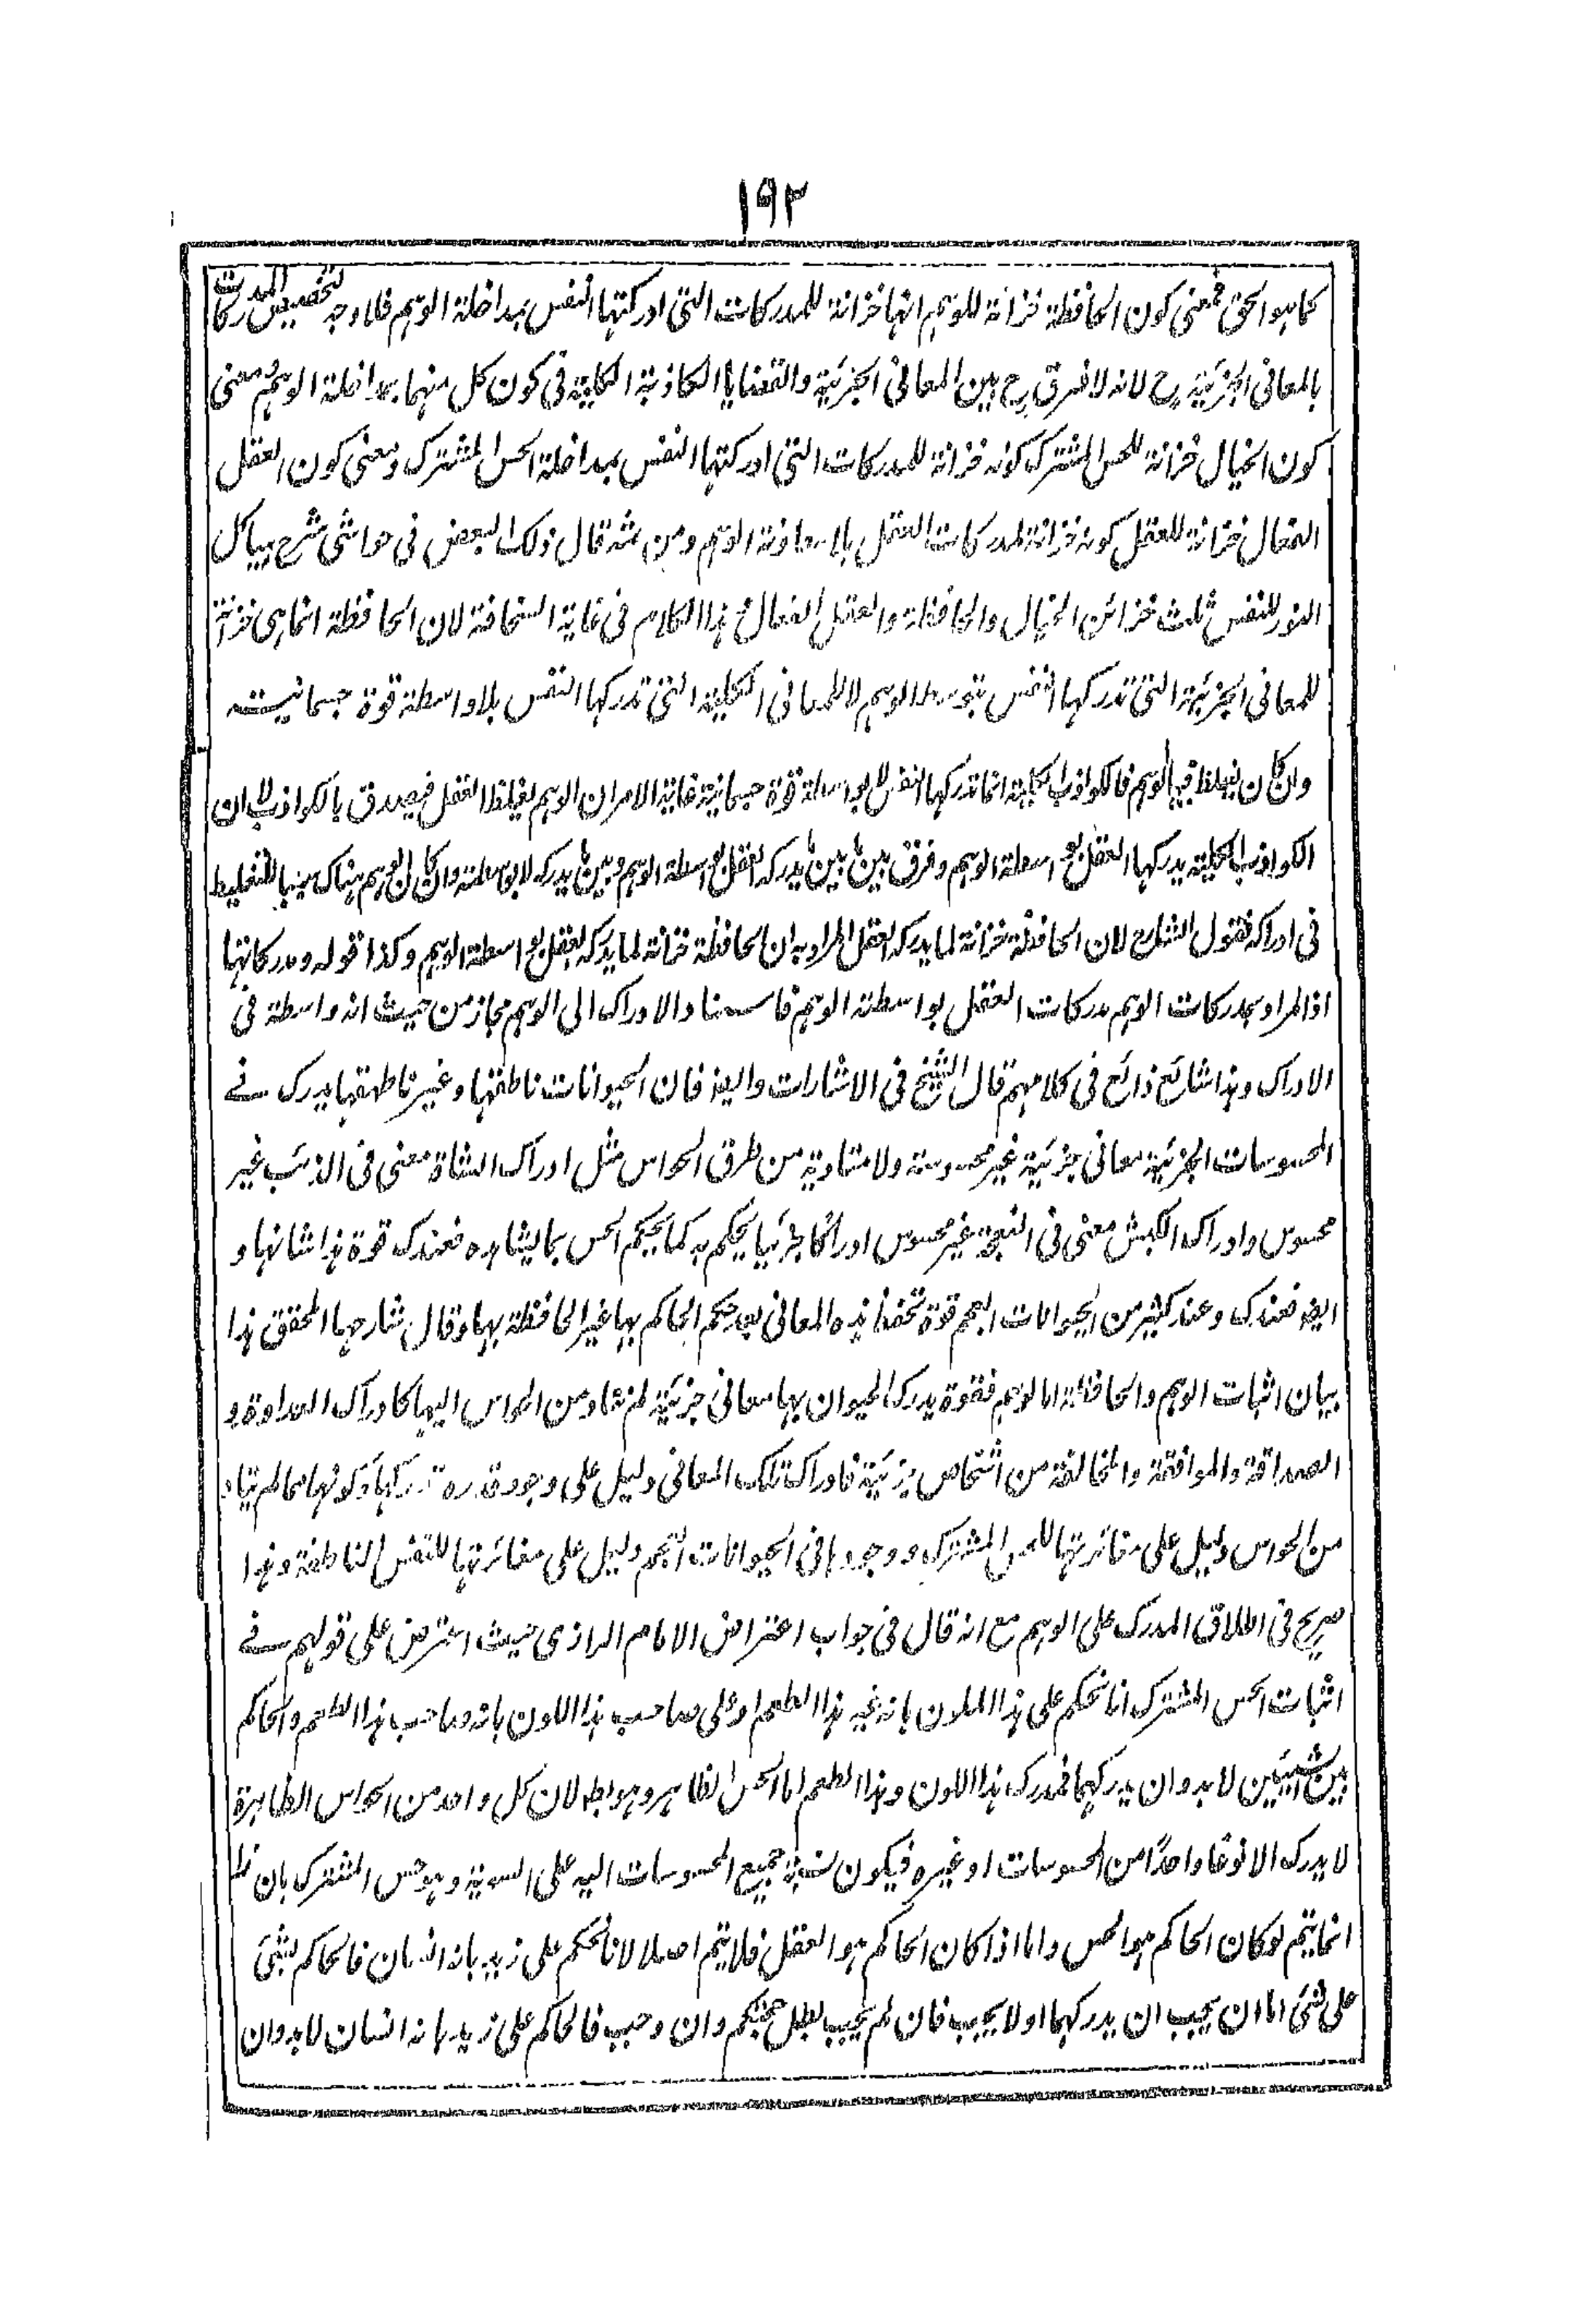 ١٩٢
كما هو الحق فمعنى كون الحافظة خزانة للوهم انها خزانة للمدركات التي ادركتها النفس بمداخلة الوهم فلا وجه لتخصيص المدركات
بالمعاني الجزئية ح لانه لا فرق ح بين المعاني الجزئية والقضايا الكاذبة الكلية في كون كل منهما بمداخلة الوهم ومعنى
كون الخيال خزانة للحس المشترك كونه خزانة للمدركات التي ادركتها النفس بمداخلة الحس المشترك ومعنى كون العقل
الفعال خزانة للعقل كونه خزانة لمدركات العقل بلا معاونة الوهم ومن ثمه قال ذلك البعض في حواشي شرح هياكل
النور للنفس ثلث خزائن الخيال والحافظة والعقل الفعال هذا الكلام في غاية السخافة لان الحافظة انما هي خزانة
للمعاني الجزئية التي تدركها النفس بتوسط الوهم لا للمعاني الكلية التي تدركها النفس بلا واسطة قوة جسمانية
وان كان يغلط فيها الوهم فالكواذب الكلية انما تدركها النفس لا بواسطة قوة جسمانية غاية الامر ان الوهم يغلط العقل فيصدق بالكواذب لا ان
الكواذب الكلية يدركها العقل بواسطة الوهم وفرق بين ما يدركه العقل بواسطة الوهم وبين ما يدركه لا بواسطته وان كان الوهم هناك سببا للتغليط
في ادراكه فقول الشارح لان الحافظة خزانة لما يدركه العقل المراد به ان الحافظة خزانة لما يدركه العقل بواسطة الوهم وكذا قوله ومدركاتها
اذ المراد بمدركات الوهم مدركات العقل بواسطة الوهم فاسناد الادراك الى الوهم مجاز من حيث انه واسطة في
الادراك وهذا شائع ذائع في كلامهم قال الشيخ في الاشارات وايضا فان الحيوانات ناطقها وغير ناطقها يدرك في
المحسوسات الجزئية معاني جزئية غير محسوسة ولا متادية من طرق الحواس مثل ادراك الشاة معنى في الذئب غير
محسوس وادراك الكبش معنى في النعجة غير محسوس ادراكا جزئيا يحكم به كما يحكم الحس بما يشاهده فعندك قوة هذا شانها و
ايضا فعندك وعند كثير من الحيوانات العجم قوة تحفظ هذه المعاني بعد حكم الحاكم بها غير الحافظة بها وقال شارحها المحقق هذا
بيان اثبات الوهم والحافظة اما الوهم فقوة يدرك الحيوان بها معاني جزئية لم يتاد من الحواس اليها كادراك العداوة و
الصداقة والموافقة والمخالفة من اشخاص جزئية فادراك تلك المعاني دليل على وجود قوة تدركها وكونها مما لم يتاد
من الحواس دليل على مغائرتها للحس المشترك ووجودها في الحيوانات العجم دليل على مغائرتها للنفس الناطقة وهذا
صريح في اطلاق المدرك على الوهم مع انه قال في جواب اعتراض الامام الرازي حيث اعترض على قولهم في
اثبات الحس المشترك انا نحكم على هذا الملون بانه غير هذا الطعم او على صاحب هذا اللون بانه صاحب هذا الطعم والحاكم
بين الشيئين لا بد وان يدركهما فمدرك هذا اللون وهذا الطعم اما الحس الظاهر وهو باطل لان كل واحد من الحواس الظاهرة
لا يدرك الا نوعا واحدا من المحسوسات او غيره فيكون نسبة جميع المحسوسات اليه على السوية وهو حس المشترك بان هذا
انما يتم لو كان الحاكم هو الحس واما اذا كان الحاكم هو العقل فلا يتم اصلا لانا نحكم على زيد بانه انسان فالحاكم بشئ
على شئ اما ان يجب ان يدركهما او لا يجب فان لم يجب بطل حجتكم وان وجب فالحاكم على زيد بانه انسان لا بد وان